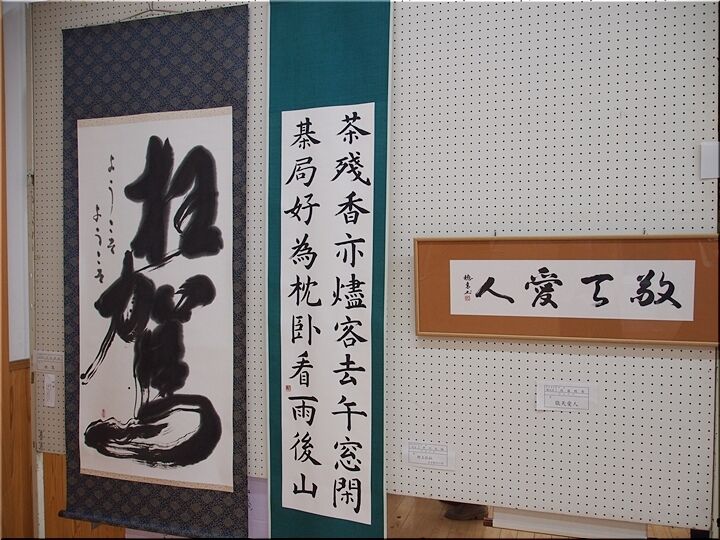 枉駕
ようこそ
ようこそ
茶殘香亦燼客去午窓閑
棊局好為枕卧看雨後山
敬天愛人
敬天愛人